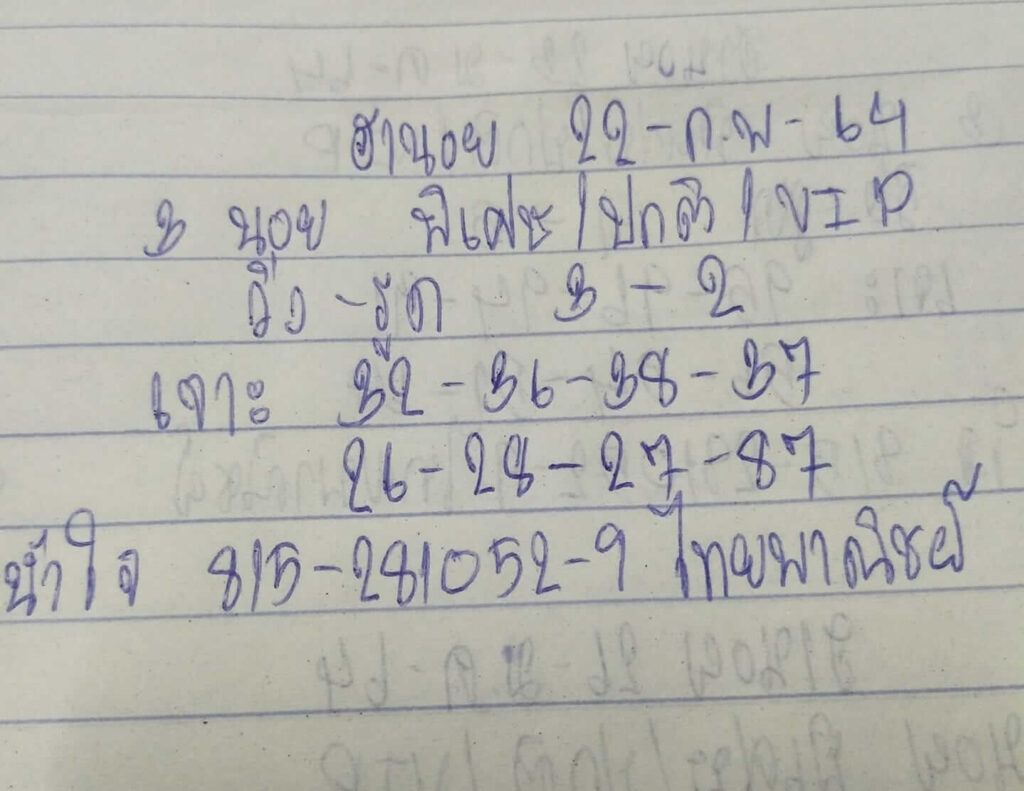 ฮานอย 22-ก.พ-64
3 นอย พิเศษ/ปกติ/VIP
วิ่ง-รูด 3-2
เจาะ 32-36-38-37
26-28-27-87
น้ำใจ 815-281052-9 ไทยพาณิชย์